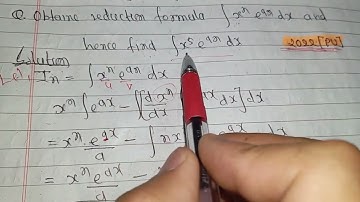 Q. Obtaine reduction formula ∫xⁿ eᵃˣ dx and
hence find ∫x⁵ eᵃˣ dx 2022 [PU]
Solution
Let, Iₙ = ∫xⁿ eᵃˣ dx
u v
xⁿ ∫eᵃˣ - ∫[dxⁿ/dx dx] dx
= xⁿ . eᵃˣ/a - ∫nx
= xⁿ eᵃˣ/a -